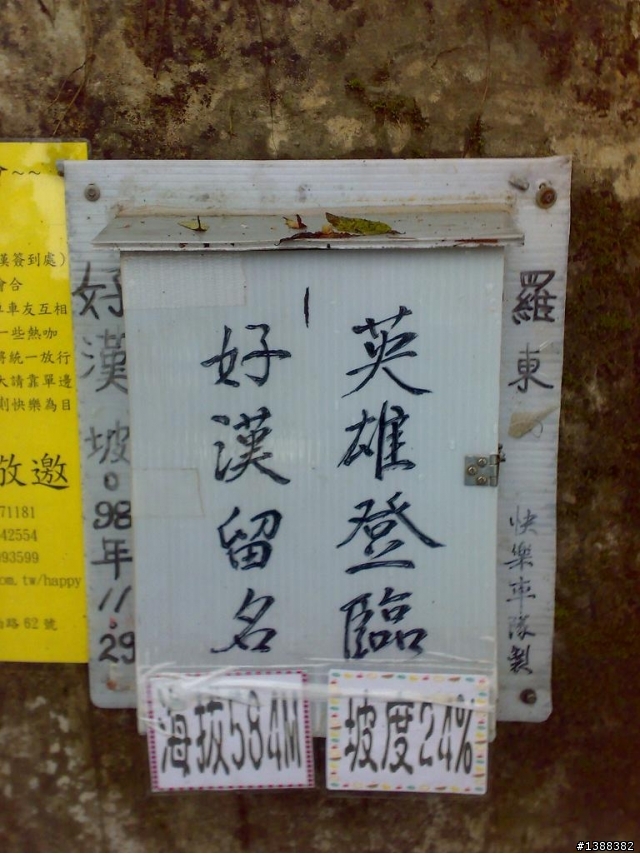 英雄登臨
好漢留名
海拔584M
坡度24%
羅東
快樂車隊製
好漢坡。98年11.29
~~
漢簽到處)
會合
車友互相
一些熱咖
將統一放行
大請靠單邊
則快樂為目
敬邀
71181
42554
093599
om.tw/happy
路62號
#1388382